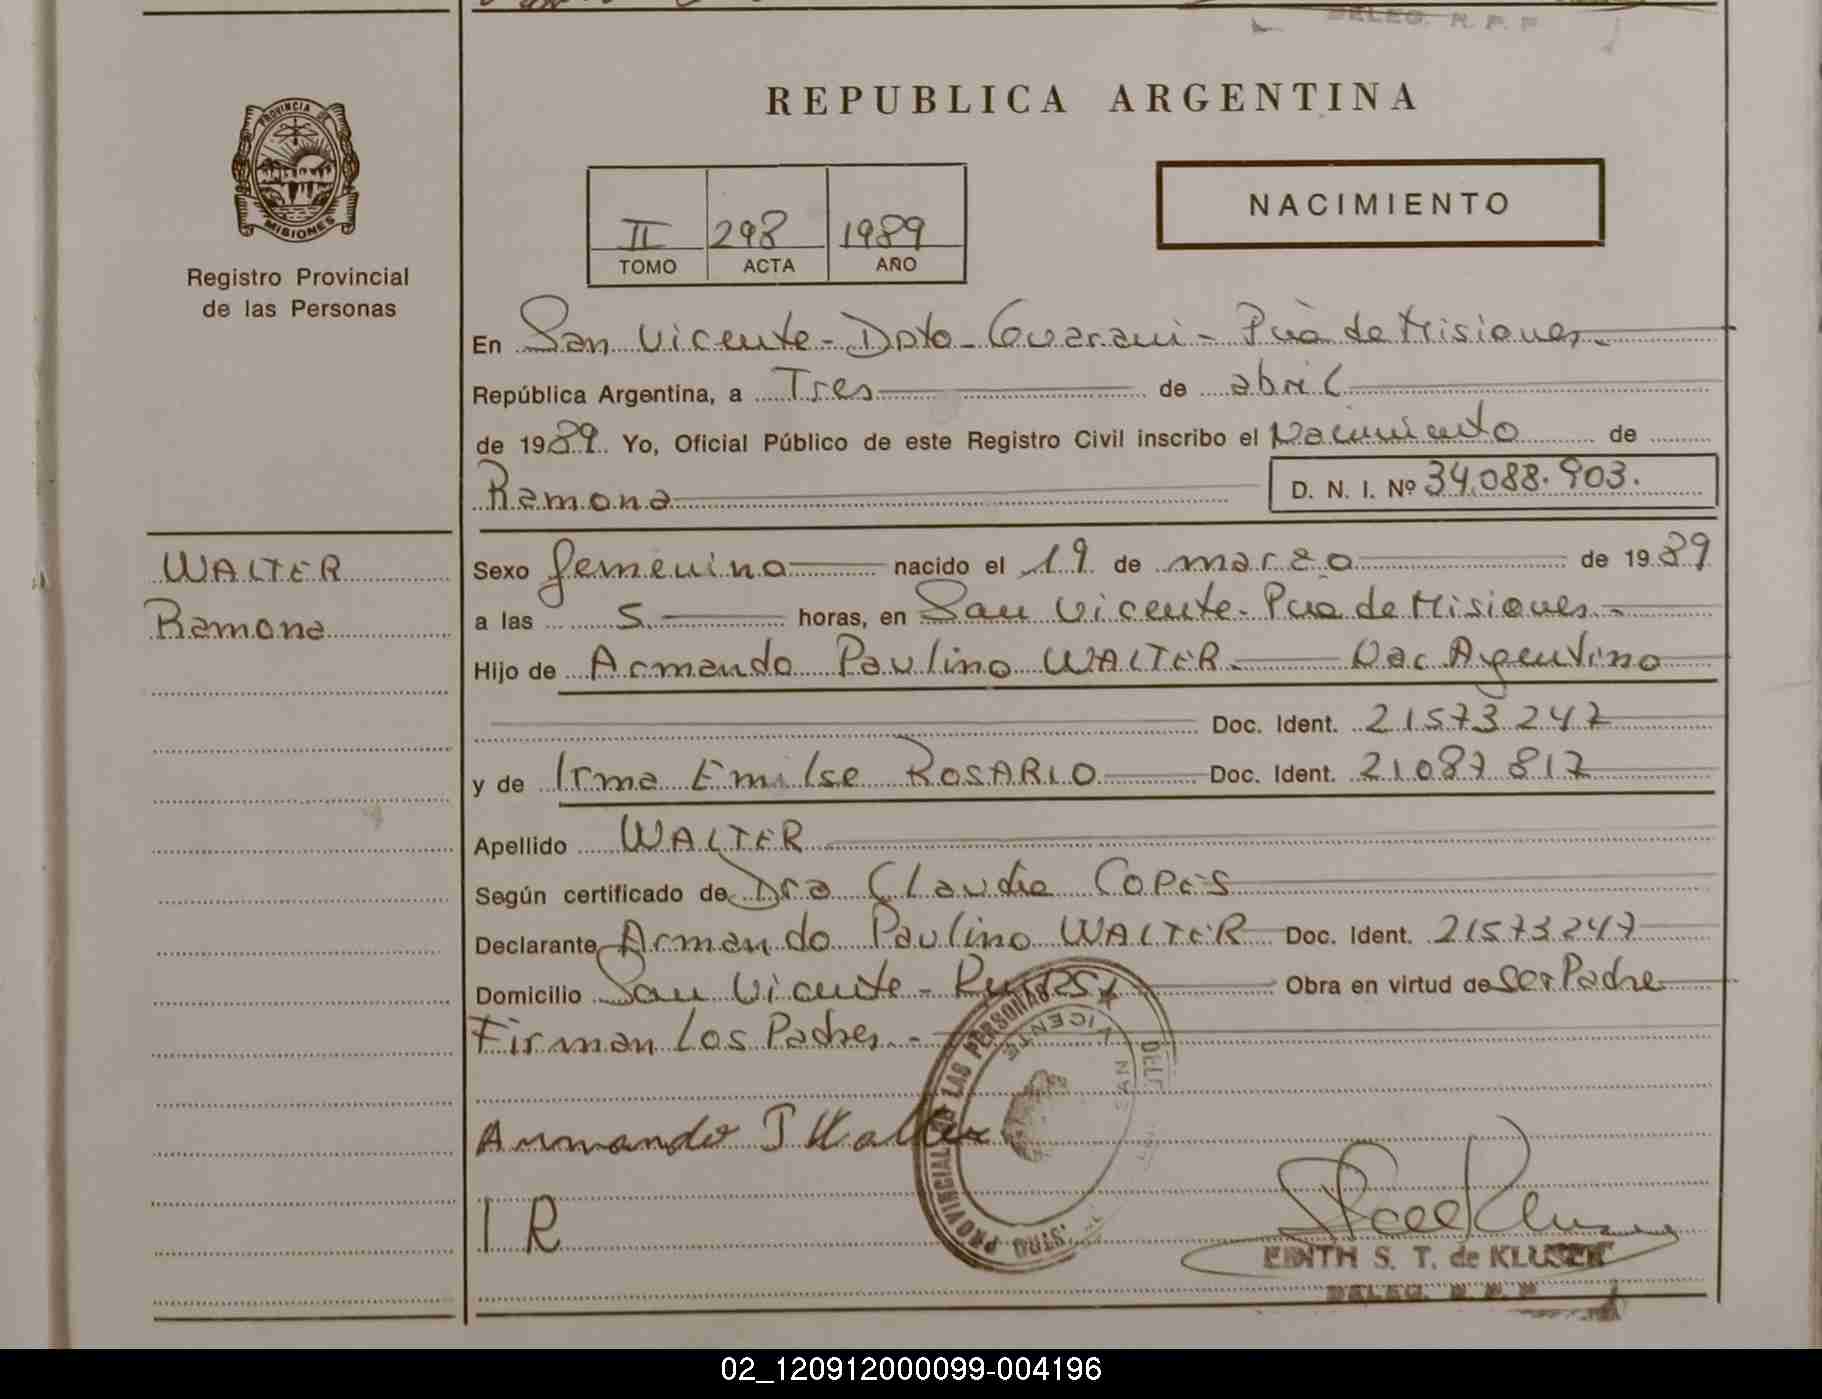 DELEG. R. P. P
REPUBLICA ARGENTINA
PROVINCIA DE
MISIONES
Registro Provincial
de las Personas
II 298 1989
TOMO ACTA AÑO
NACIMIENTO
En San Vicente - Dpto - Guarani - Pcia de Misiones -
República Argentina, a Tres de abril
de 1989. Yo, Oficial Público de este Registro Civil inscribo el Nacimiento de
Ramona D. N. I. Nº 34.088.903.
WALTER
Ramona
Sexo femenino nacido el 19 de marzo de 1989
a las 5 horas, en San Vicente - Pcia de Misiones -
Hijo de Armando Paulino WALTER - Nac Argentino
Doc. Ident. 21573247
y de Irma Emilse ROSARIO Doc. Ident. 21087817
Apellido WALTER
Según certificado de Dra Claudia COPES
Declarante Armando Paulino WALTER Doc. Ident. 21573247
Domicilio San Vicente - Obra en virtud de Ser Padre
Firman Los Padres -
Armando P Walter
I R
STRO PROVINCIAL DE LAS PERSONAS
SAN VICENTE
EDITH S. T. de KLUSEN
DELEG. R. P. P
02_120912000099-004196